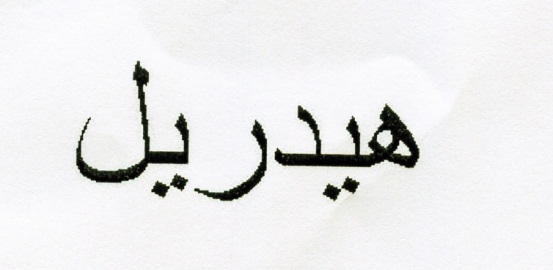 هيدريل